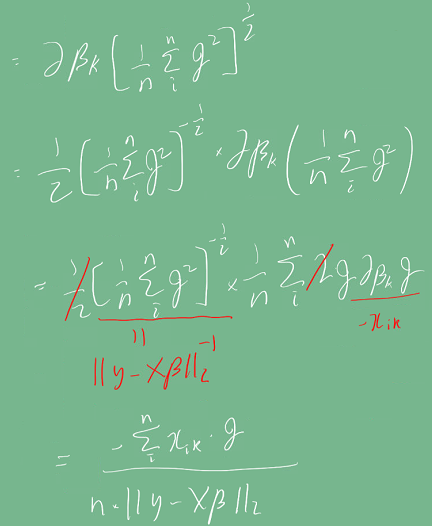 = ∂βk [ 1/n Σ_i^n g² ]^{1/2}
= 1/2 [ 1/n Σ_i^n g² ]^{-1/2} · ∂βk ( 1/n Σ_i^n g² )
= 1/2 [ 1/n Σ_i^n g² ]^{-1/2} × 1/n Σ_i^n 2 g ∂βk g
-x_{ik}
||
||y - Xβ||₂^{-1}
= -Σ_i^n x_{ik} · g / n · ||y - Xβ||₂